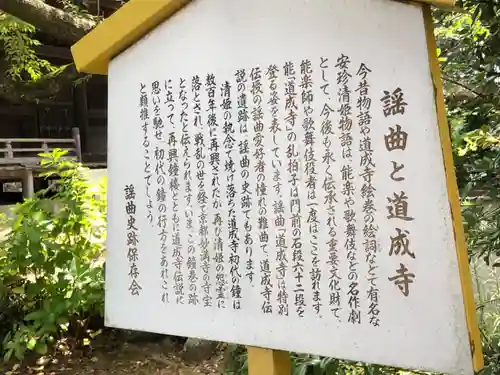 謡曲と道成寺
今昔物語や道成寺絵巻の絵詞などで有名な
安珍清姫物語は、能楽や歌舞伎などの名作劇
として、今後も永く伝承される重要文化財で、
能楽師や歌舞伎役者は一度はここを訪れます。
能「道成寺」の乱拍子は門前の石段六十二段を
登る姿を表しています。謡曲「道成寺」は特別
伝授の謡曲愛好者の憧れの難曲で、道成寺伝
説の史蹟は、謡曲の史跡でもあります。
清姫の執念で焼け落ちた道成寺初代の鐘は
数百年後に再興されたが、再び清姫の怨霊に
落とされ、戦乱の世を経て京都妙満寺の寺宝
となったと伝えられます。いま、この鐘巻の跡
に立って、再興鐘楼とともに道成寺伝説に
思いを馳せ、初代の鐘の行方をあれこれ
と願推することでしょう。
謡曲史跡保存会